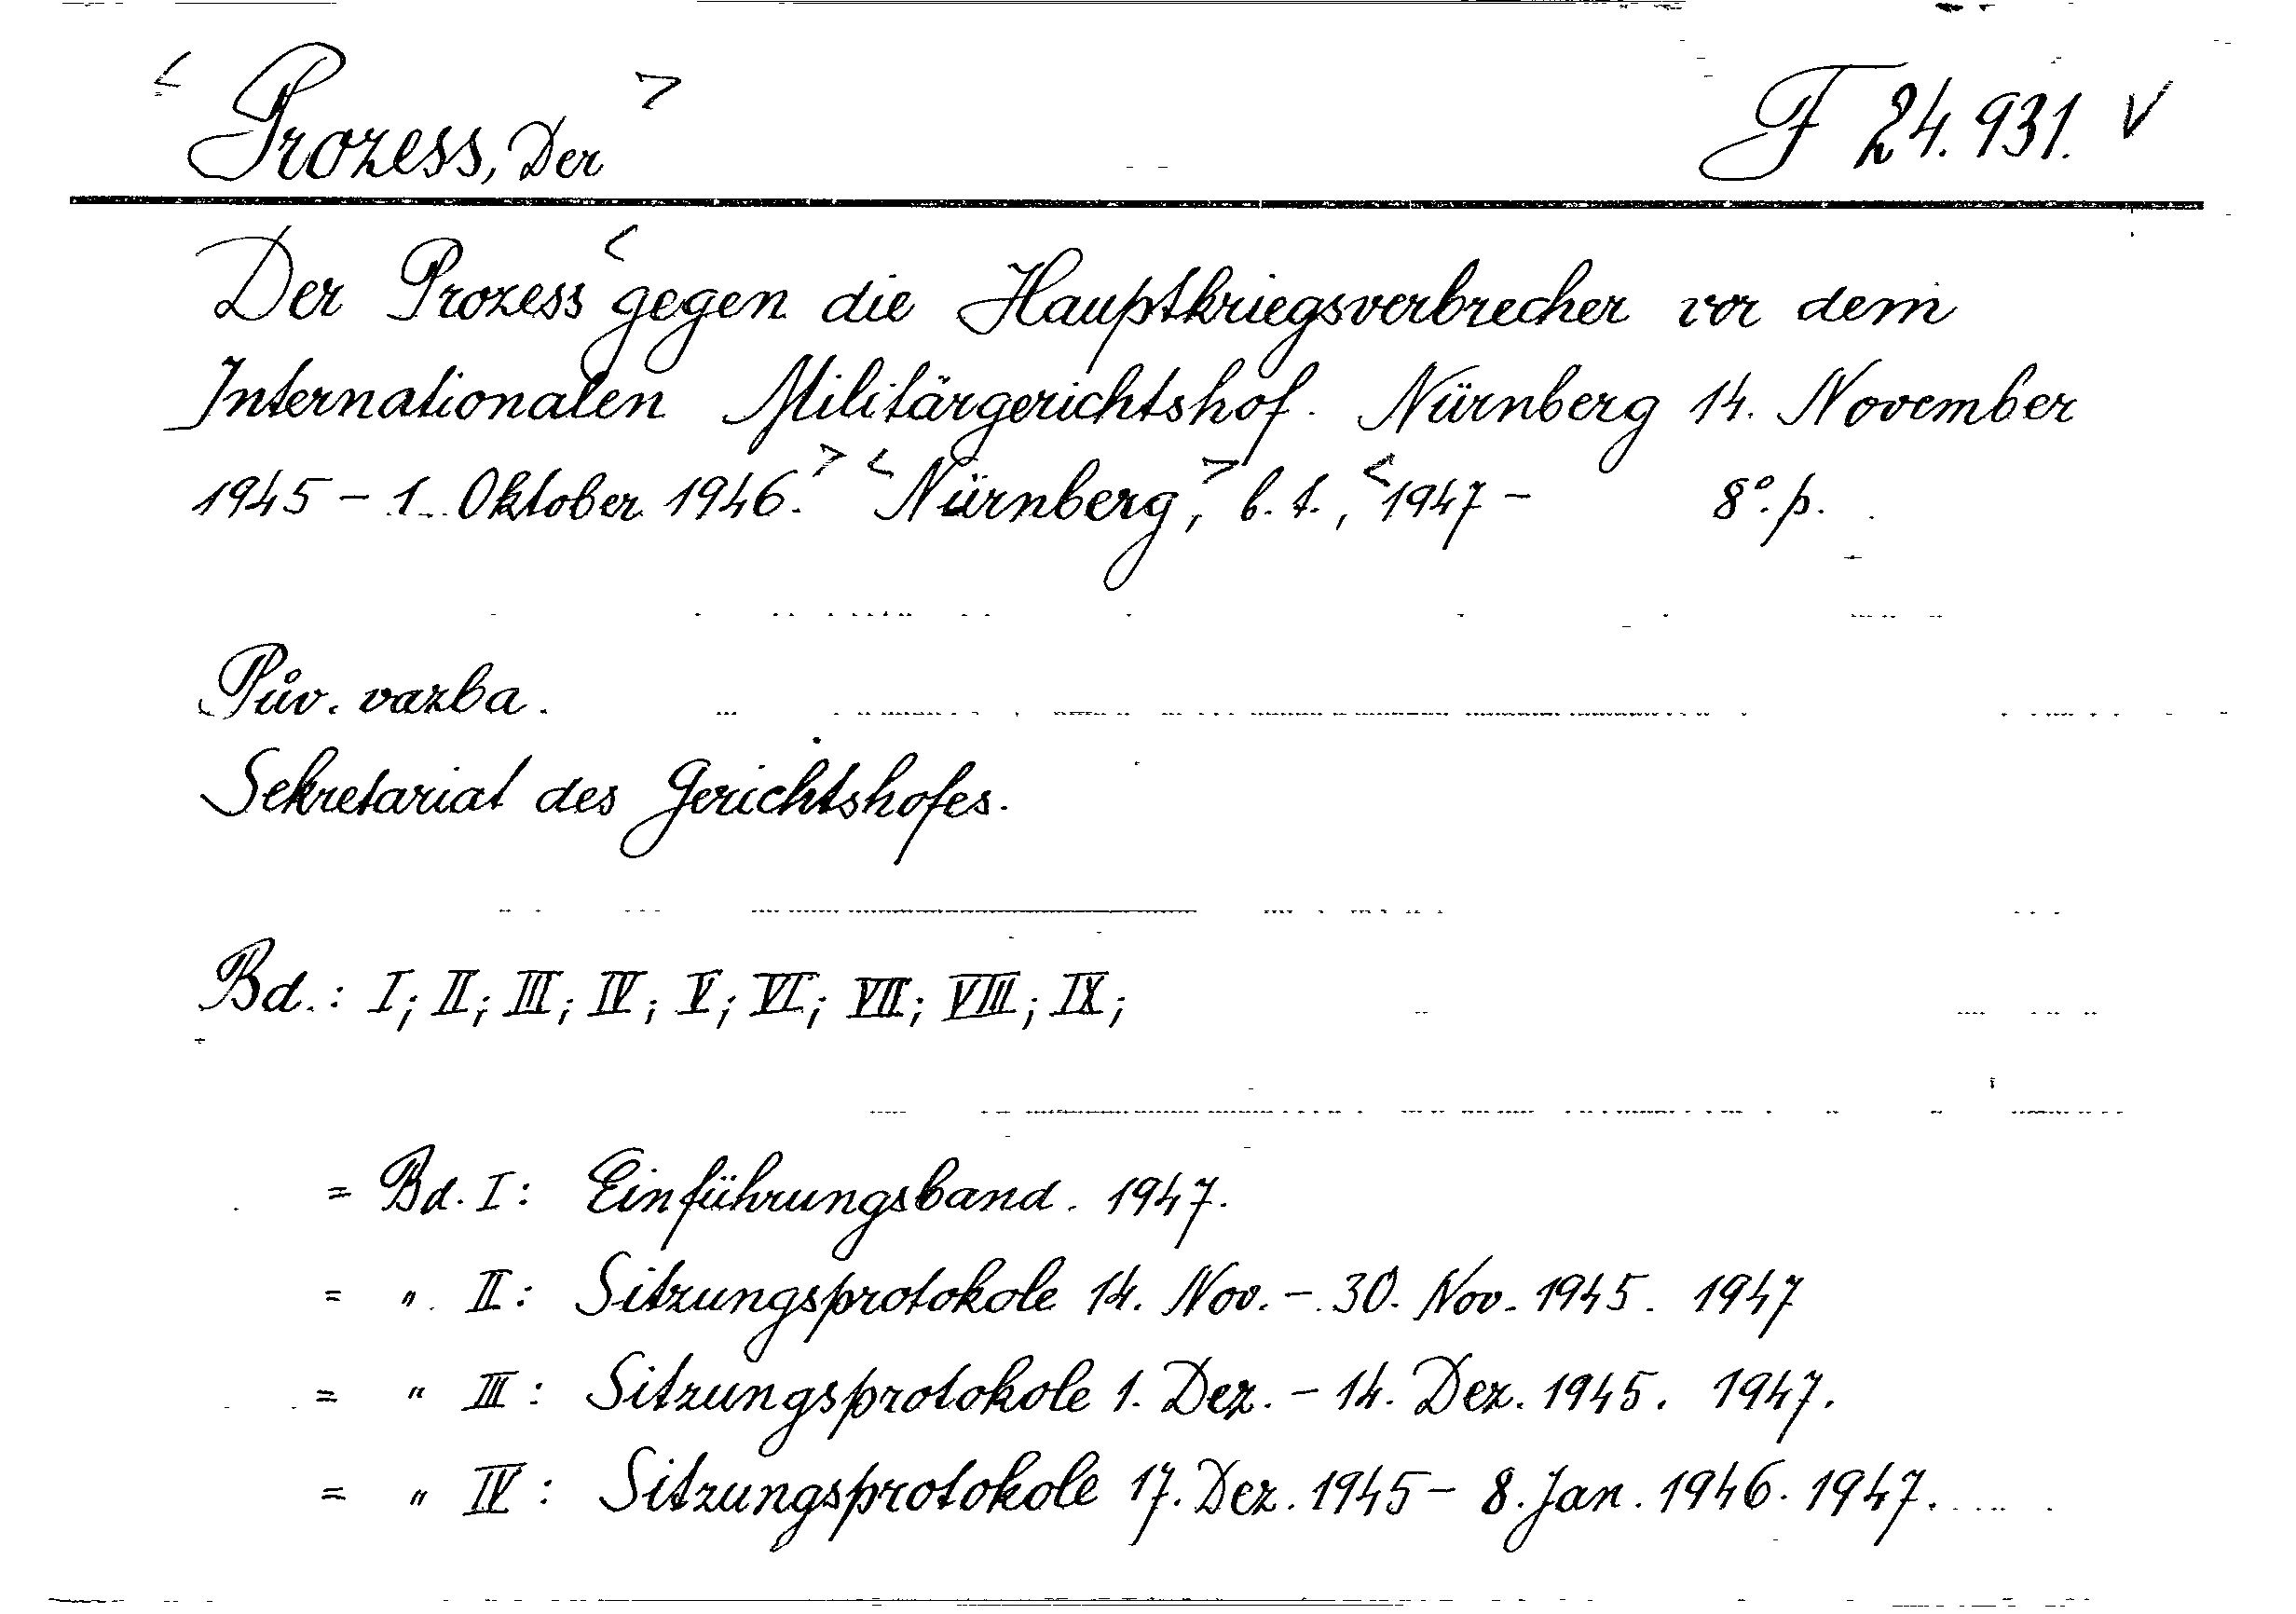 < Prozess, Der > F 24.931. V
Der Prozess < gegen die Hauptkriegsverbrecher vor dem
Internationalen Militärgerichtshof. Nürnberg 14. November
1945 – 1. Oktober 1946. > < Nürnberg, > b. t., < 1947 – 8°. p.
Pův. vazba.
Sekretariat des Gerichtshofes.
Bd.: I; II; III; IV; V; VI; VII; VIII; IX;
= Bd. I: Einführungsband. 1947.
= " II: Sitzungsprotokole 14. Nov. – 30. Nov. 1945. 1947
= " III: Sitzungsprotokole 1. Dez. – 14. Dez. 1945. 1947.
= " IV: Sitzungsprotokole 17. Dez. 1945 – 8. Jan. 1946. 1947.